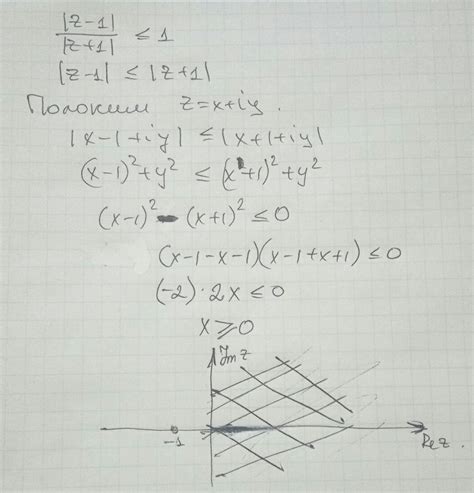 |z-1| / |z+1| ≤ 1
|z-1| ≤ |z+1|
Положим z=x+iy.
|x-1+iy| ≤ |x+1+iy|
(x-1)²+y² ≤ (x+1)²+y²
(x-1)² - (x+1)² ≤ 0
(x-1-x-1)(x-1+x+1) ≤ 0
(-2)·2x ≤ 0
x ⩾ 0
Im z
-1
Re z.